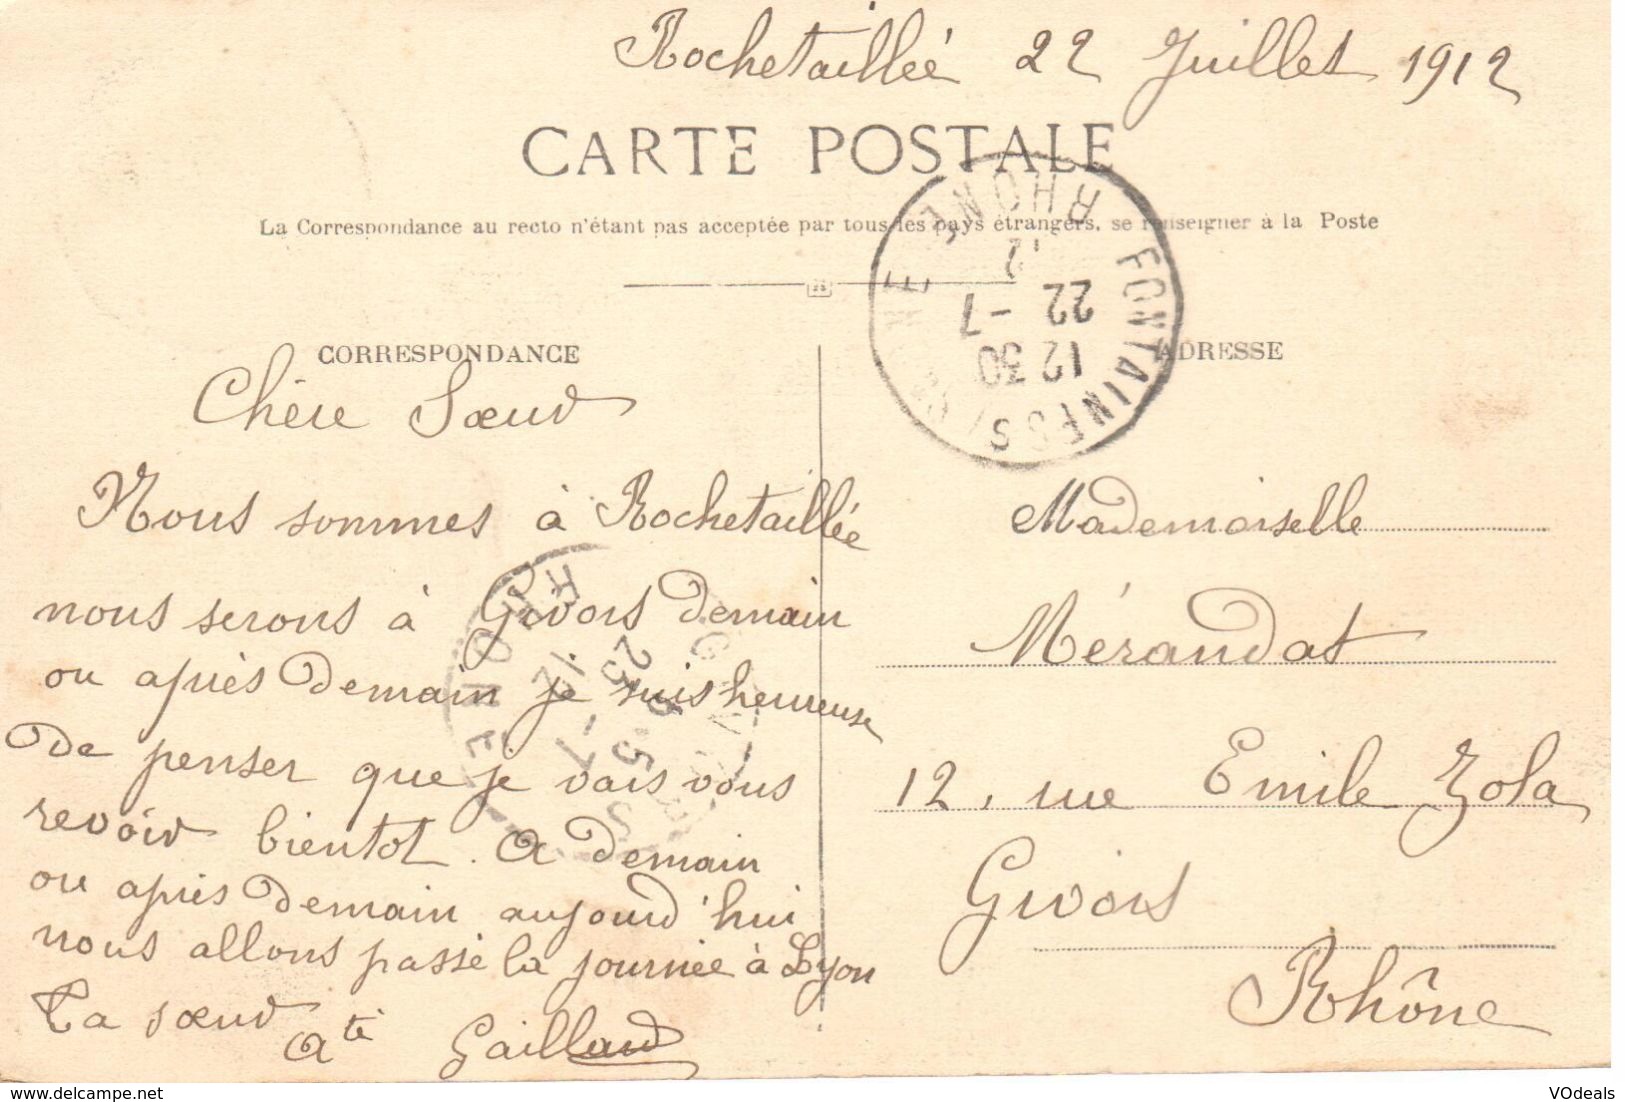 Rochetaillée 22 Juillet 1912
CARTE POSTALE
La Correspondance au recto n'étant pas acceptée par tous les pays étrangers, se renseigner à la Poste
CORRESPONDANCE
Chère Sœur
Nous sommes à Rochetaillée
nous serons à Givors demain
ou après demain je suis heureuse
de penser que je vais vous
revoir bientot. A demain
ou après demain aujourd'hui
nous allons passé la journée à Lyon
Ta sœur
Ate Gaillard
ADRESSE
Mademoiselle
Mérandat
12, rue Emile Zola
Givors
Rhône
FONTAINES S/
RHONE
12 30
22 -7
12
GIVORS
RHONE
23 -7
12
www.delcampe.net
VOdeals